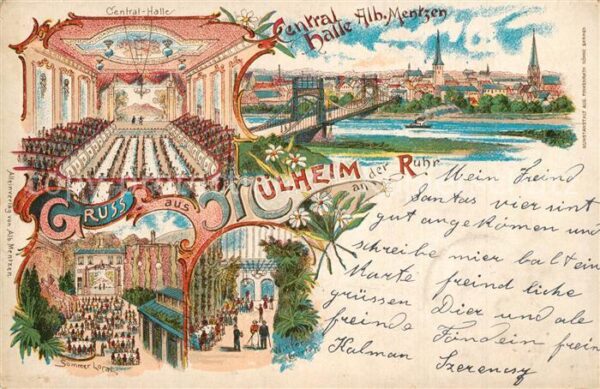 Central-Halle
Central
Halle Alb. Mentzen
Gruss aus Mülheim an der Ruhr
Alleinverlag von Alb. Mentzen.
Sommer
Mein Freind
Santas vier sint
gut angekomen und
schreibe mier balt ein
Karte freind liche
grüssen Dier und ale
freinde frein
Kalman Szerencsy